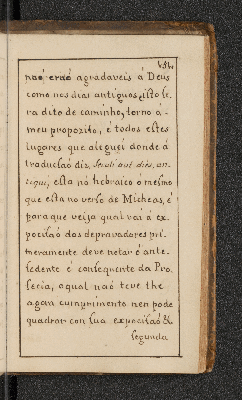 naó eraó agradaveis á Deus
como nos dias antiguos, isto se
ra dito de caminho, torno á
meu propozito, é todos estes
lugares que aleguei donde á
traduçaó diz, sicuti aut dies, an-
tiqui, esta nó hebraico o mesmo
que esta no verso de Micheas, é
para que veija qual vai á ex-
poçisaó dos depravadores pri-
meramente deve notar é ante-
sedente é consequente da Pro-
fecia, o qual naó teve the
agan cumprimento nen pode
quadrar con sua exposisaó &
segunda